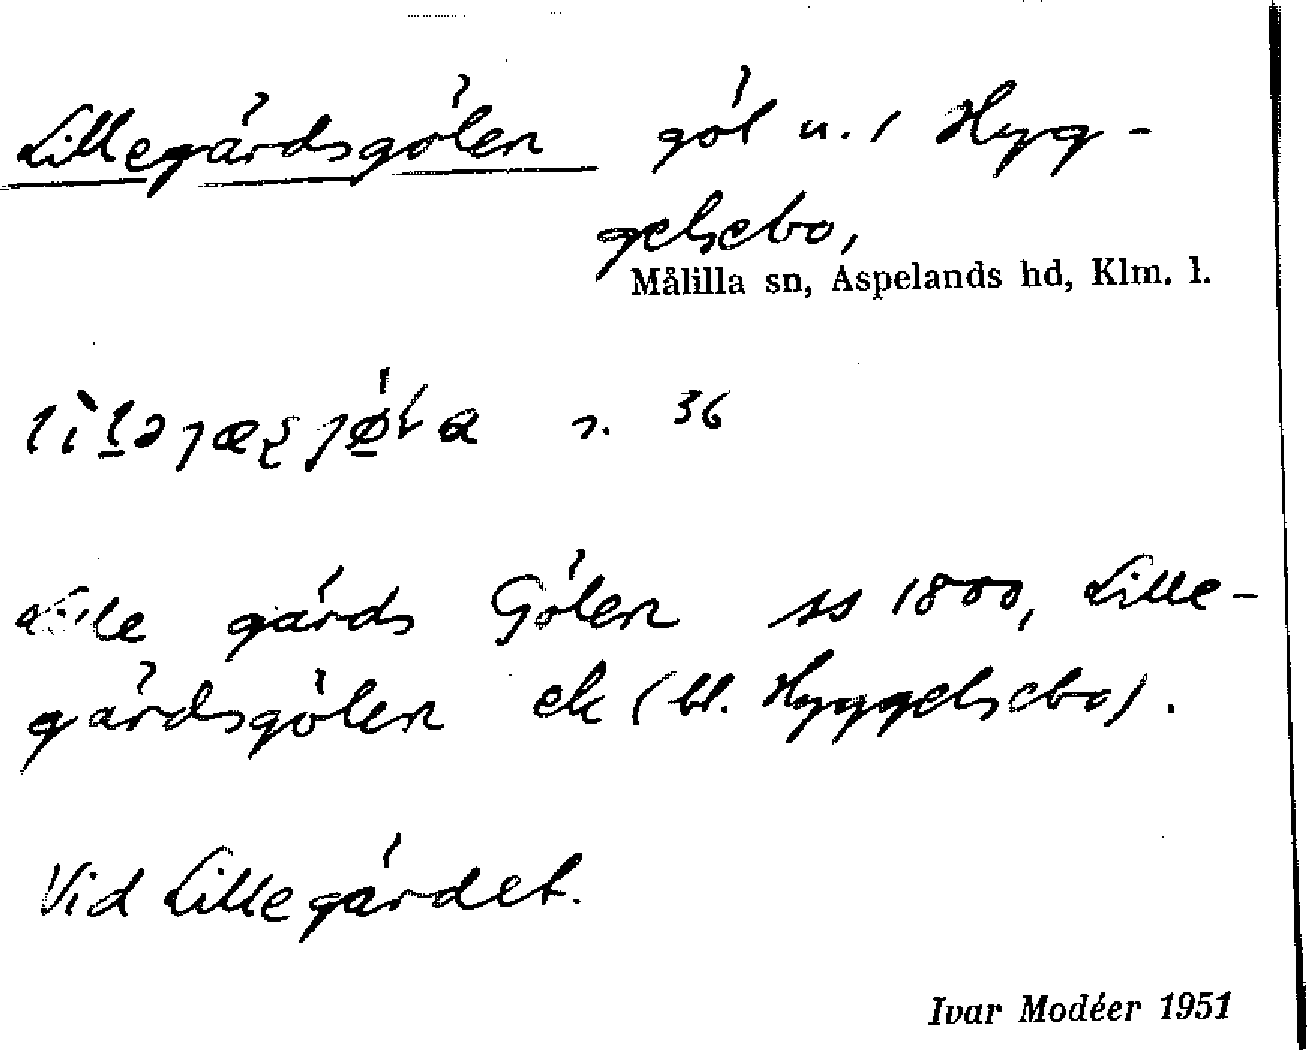 Lillegärdsgölen göl u. / Hyg-
gelsebo,
Målilla sn, Aspelands hd, Klm. l.
36
Lille gärds Gölen ss 1800, Lille-
gärdsgölen ek (bl. Hyggelsebo).
Vid Lillegärdet.
Ivar Modéer 1951